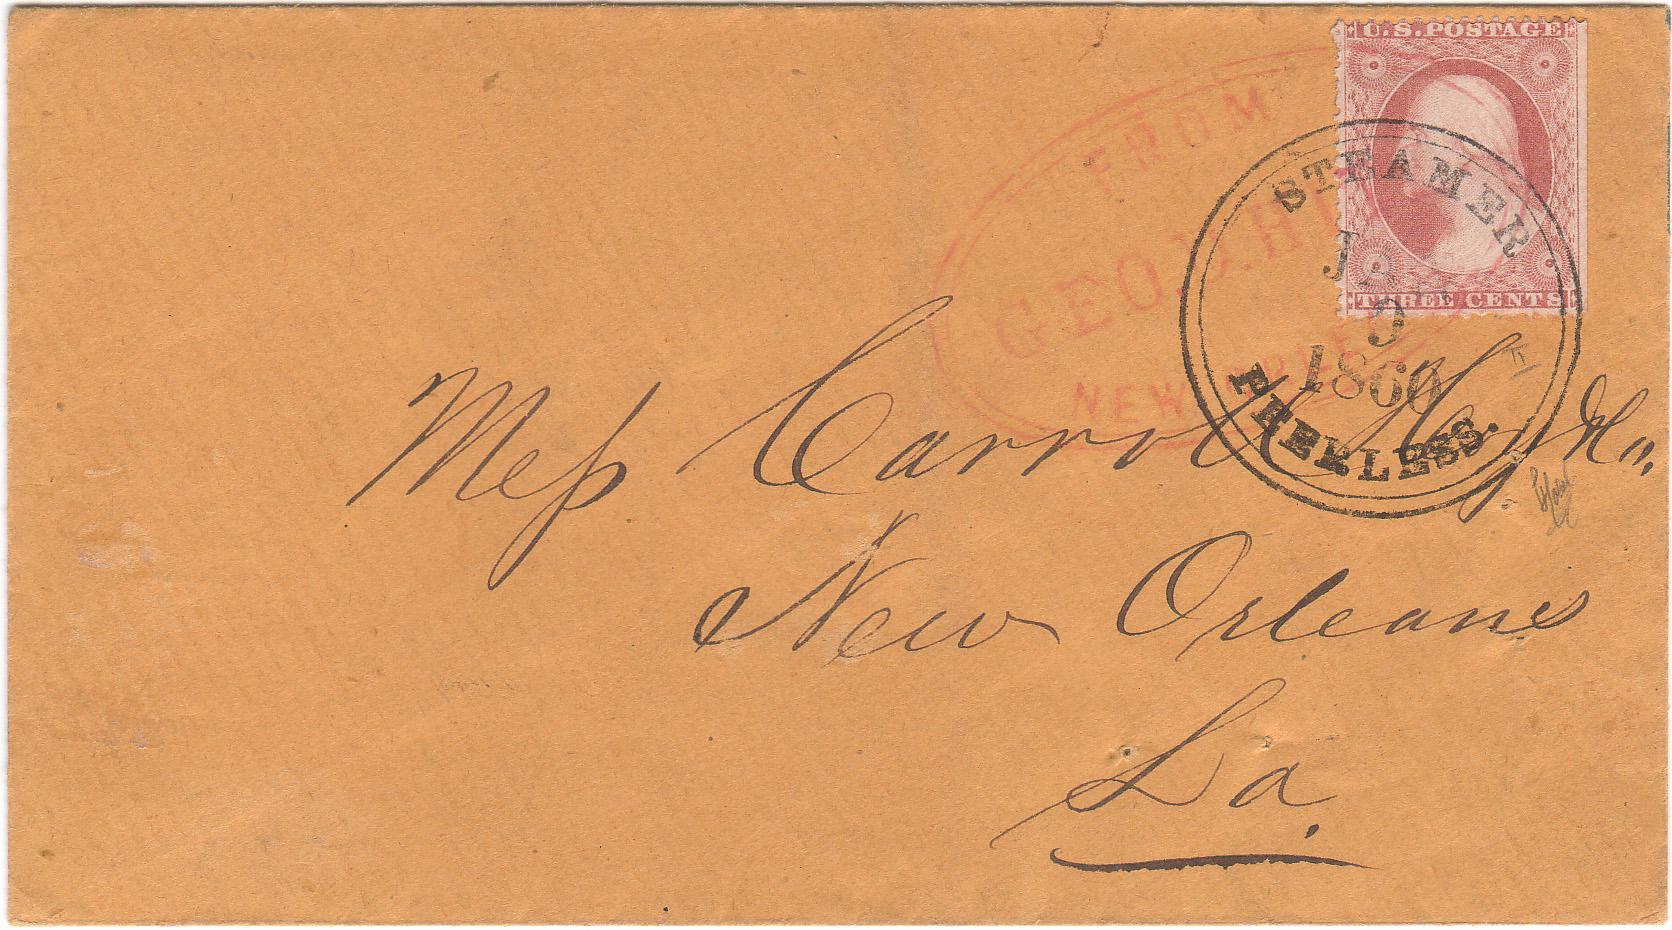 U.S. POSTAGE
THREE CENTS
FROM
GEO. 
NEW
STEAMER
JAN
9
1860
PEERLESS.
Mess Carroll Hoy & Co.
New Orleans
La.